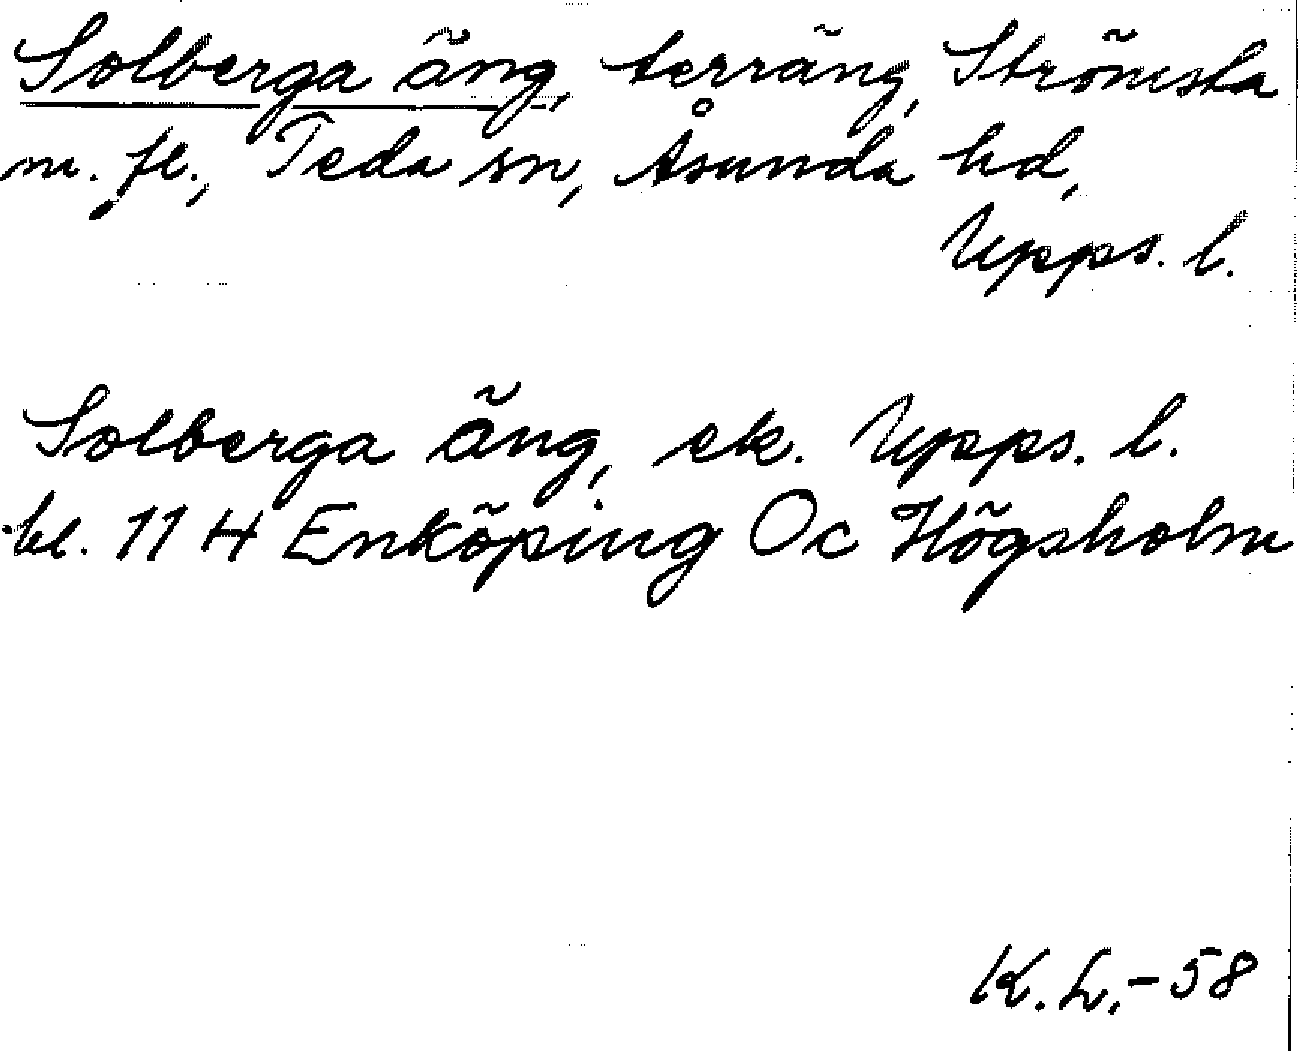 Solberga äng, terräng, Strömsta
m. fl., Teda sn, Åsunda hd,
Upps. l.
Solberga äng, ek. Upps. l.
bl. 11 H Enköping Oc Högsholm
K. L. -58